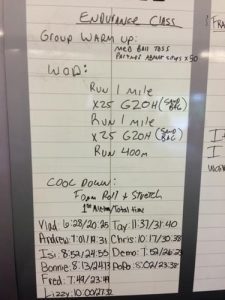 ENDURANCE CLASS
GROUP WARM UP:
MED BALL TOSS
PARTNER x50
WOD:
RUN 1 MILE
x25 G2OH (SAND BAG)
RUN 1 MILE
x25 G2OH (SAND BAG)
RUN 400m
COOL DOWN:
FOAM ROLL & STRETCH
1st Total time
Vlad: 6:28/20:25 Tay: 11:37/31:40
Andrew: 7:01/19:31 Chris: 10:17/30:38
Isi: 8:52/24:55 Demo: 7:52/26:23
Bonnie: 8:13/24:13 PoPo: 8:02/23:38
Fred: 7:49/23:49
Lizzy: 10:00/27:32
FRA
I